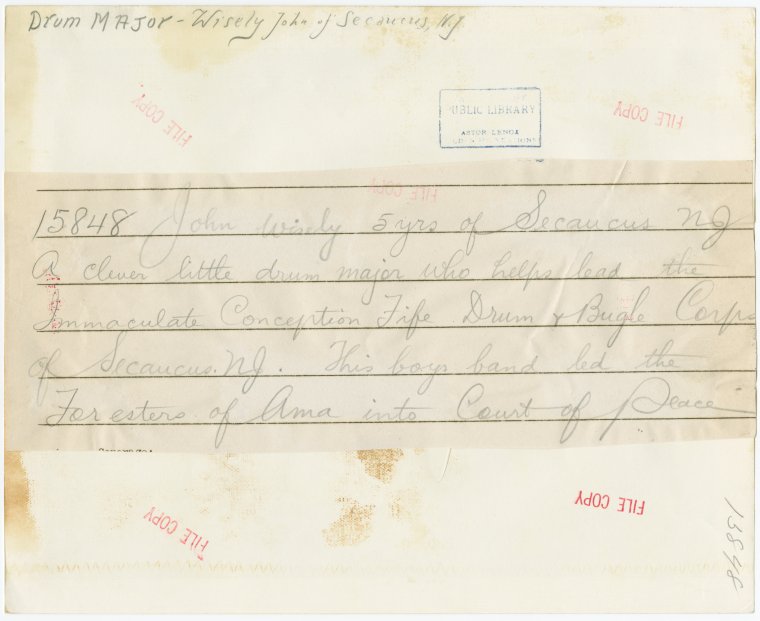 Drum Major - Wisely John of Secaucus, N.J
FILE COPY
PUBLIC LIBRARY
ASTOR LENOX
FILE COPY
FILE COPY
15848 John Wisely 5 yrs of Secaucus NJ
A clever little drum major who helps lead the
Immaculate Conception Fife Drum & Bugle Corps
of Secaucus. NJ. This boys band led the
Foresters of Ama into Court of Peace
FILE COPY
FILE COPY
13848